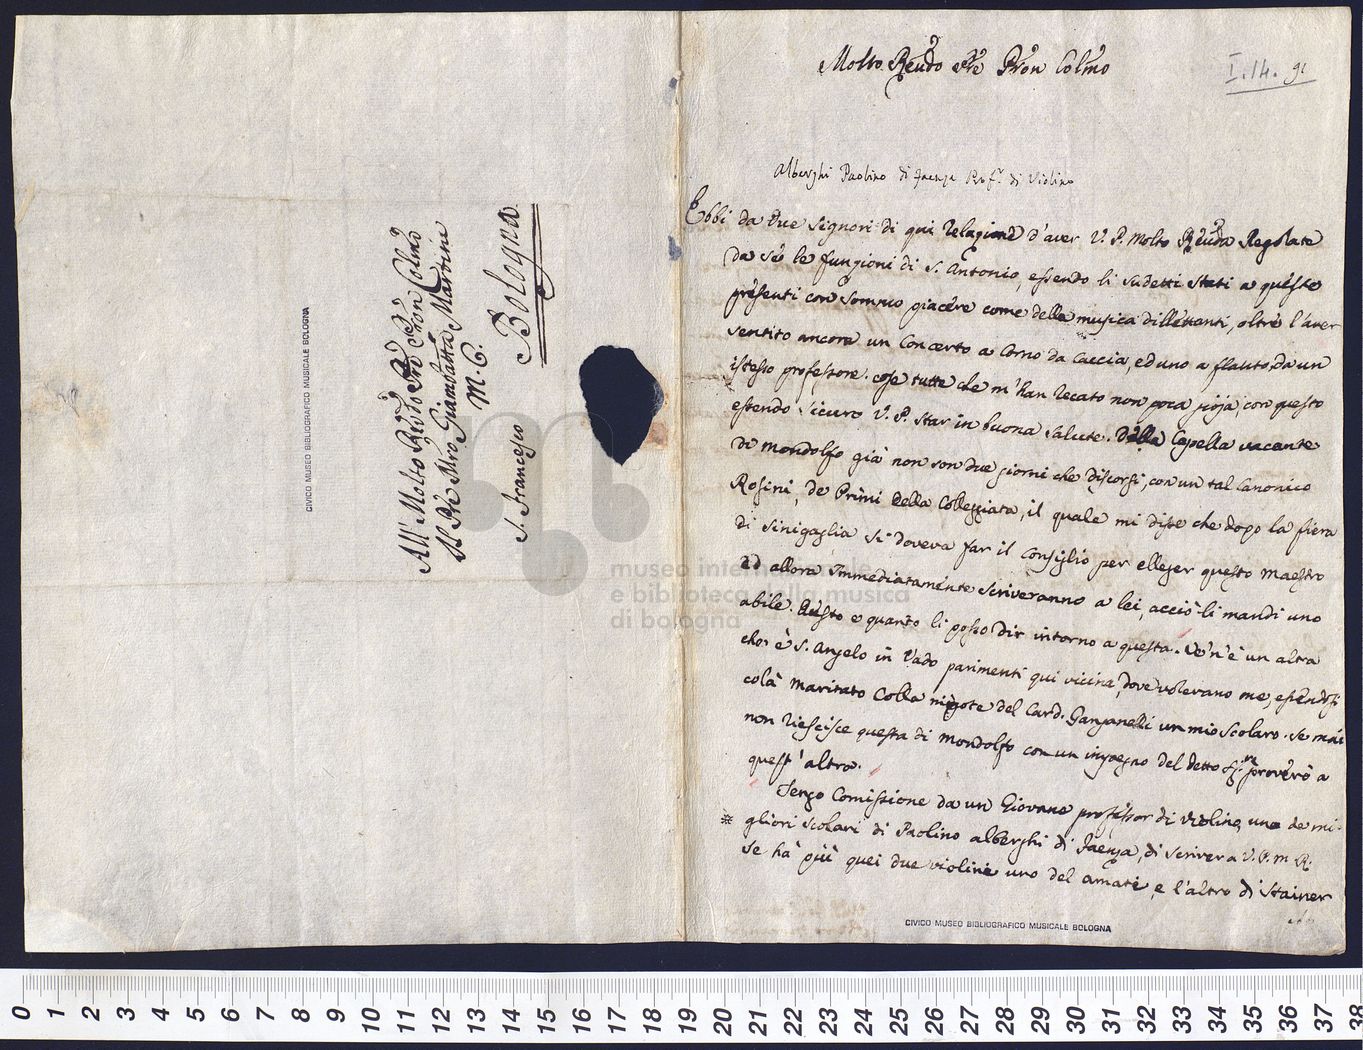 All' Molto Rẽvdo Prẽ Prõn Colmõ
Al Prẽ Mro. Giambatta Martini
M. C.
S. Francesco Bologna
CIVICO MUSEO BIBLIOGRAFICO MUSICALE BOLOGNA
Molto Rẽvdo Prẽ Prõn Colmõ
I.14. 91
Alberghi Paolino di Faenza Prof.e di Violino
Ebbi da due Signori di qui Relazione d'aver V. P. Molto Rẽvda Regolate
da sè le funzioni di S. Antonio, essendo li sudetti stati a queste
presenti con sommo piacere come della musica dillettanti, oltre l'aver
sentito ancora un Concerto a Corno da Caccia, ed uno a flauto da un
istesso professore. cose tutte che m'han recato non poca gioja con questo
essendo sicuro V. P. star in buona salute. Della Capella vacante
di Mondolfo già non son due giorni che discorsi, con un tal Canonico
Rosini, de Primi della Colleggiata, il quale mi disse che dopo la fiera
di Sinigaglia si doveva far il Consiglio per elleger questo Maestro
ed allora immediatamente scriveranno a lei, acciò li mandi uno
abile. Questo e quanto li posso dir intorno a questa. Ve n'è un altra
che è S. Angelo in Vado parimenti qui vicina, dove volevano me, essendosi
colà maritato colla nipote del Card. Ganganelli un mio Scolaro. Se mai
non riescisce questa di Mondolfo con un impegno del detto proverò a
quest'altra.
Tengo Comissione da un Giovane professor di violino, uno de mi-
gliori scolari di Paolino alberghi di Faenza, di scriver a V. P. M. R.
se hà più quei due violini uno del amati, e l'altro di Stainer
CIVICO MUSEO BIBLIOGRAFICO MUSICALE BOLOGNA
museo internazionale
e biblioteca della musica
di bologna
0 1 2 3 4 5 6 7 8 9 10 11 12 13 14 15 16 17 18 19 20 21 22 23 24 25 26 27 28 29 30 31 32 33 34 35 36 37 38